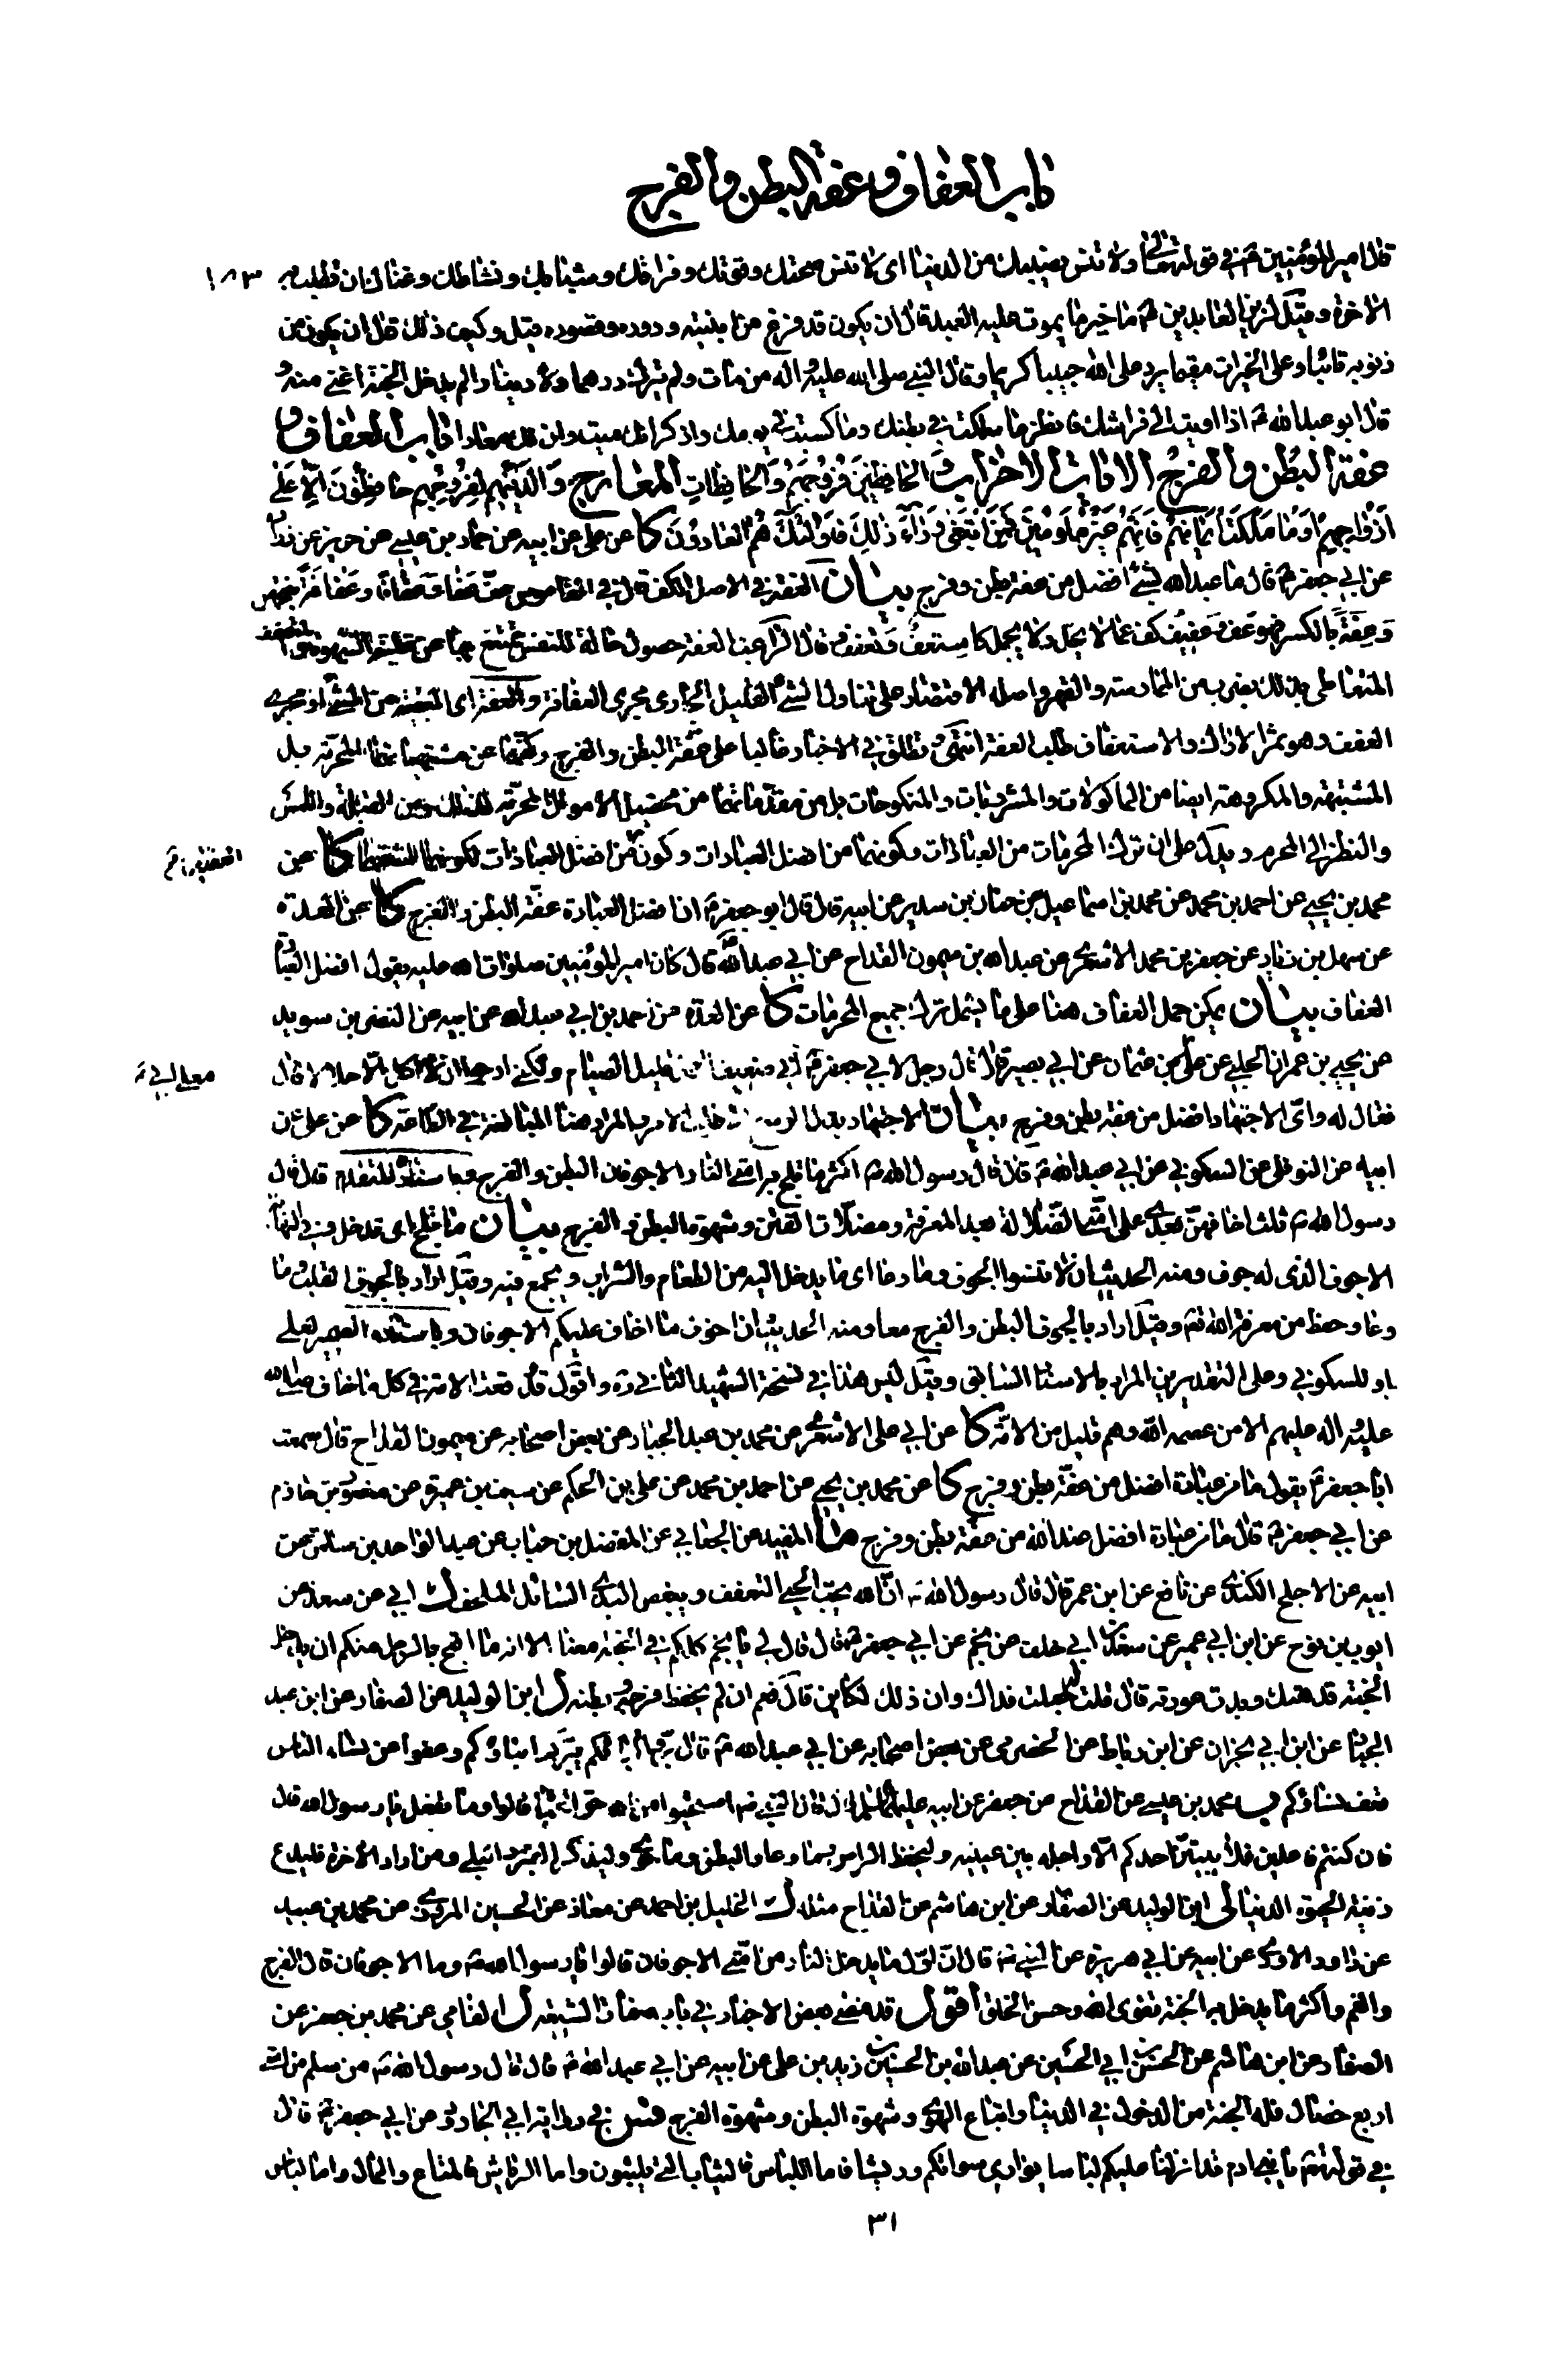 باب العفاف وعفة البطن والفرج
قال امير المؤمنين ع في قوله تعالى ولا تنس نصيبك من الدنيا اى لا تنس صحتك وقوتك وفراغك وشبابك ونشاطك وغناك ان تطلب به
١٨٣
الاخرة وقيل لزين العابدين ع ما خير ما يموت عليه العبد قال ان يكون قد فرغ من ابنيته ودوره وقصوره قيل وكيف ذلك قال ان يكون من
ذنوبه تائبا وعلى الخيرات مقيما يرد على الله حبيبا كريما وقال النبي صلى الله عليه واله من مات ولم يترك درهما ولا دينارا لم يدخل الجنة اغنى منه و
قال ابو عبد الله ع اذا اويت الى فراشك فانظر ما سلكت في بطنك وما كسبت في يومك واذكر انك ميت وان لك معادا باب العفاف و
عفة البطن والفرج الايات الاحزاب والحافظين فروجهم والحافظات المعارج والذين هم لفروجهم حافظون الا على
ازواجهم او ما ملكت ايمانهم فانهم غير ملومين فمن ابتغى وراء ذلك فاولئك هم العادون كا عن على عن ابيه عن حماد بن عيسى عن حريز عن زرارة
عن ابي جعفر ع قال ما عبد الله بشئ افضل من عفة بطن وفرج بيان العفة في الاصل الكف قال في القاموس عف عفا وعفافا وعفافة بفتحهن
وعفة بالكسر فهو عف وعفيف كف عما لا يحل ولا يجمل كاستعف وتعفف وقال الراغب العفة حصول حالة للنفس تمتنع بها عن غلبة الشهوة والمتعفف
المتعاطى لذلك بضرب من الممارسة والقهر واصله الاقتصار على تناول الشئ القليل الجارى مجرى العفافة والعفة اى البقية من الشئ او مجرى
العفف وهو ثمر الاراك والاستعفاف طلب العفة انتهى وتطلق في الاخبار غالبا على عفة البطن والفرج وكفهما عن مشتهياتهما المحرمة بل
المشتبهة والمكروهة ايضا من الماكولات والمشروبات والمنكوحات بل من مقدماتهما من تحصيل الاموال المحرمة لذلك ومن القبلة واللمس
والنظر الى المحرم ويدل على ان ترك المحرمات من العبادات وكونهما من افضل العبادات لكونهما اشقهما كا عن
محمد بن يحيى عن احمد بن محمد عن محمد بن اسماعيل عن حنان بن سدير عن ابيه قال قال ابو جعفر ع ان افضل العبادة عفة البطن والفرج كا عن العدة
عن سهل بن زياد عن جعفر بن محمد الاشعرى عن عبد الله بن ميمون القداح عن ابي عبد الله قال كان امير المؤمنين صلوات الله عليه يقول افضل العبادة
العفاف بيان يمكن حمل العفاف هنا على ما يشمل ترك جميع المحرمات كا عن العدة عن احمد بن ابي عبد الله عن ابيه عن النضر بن سويد
عن يحيى بن عمران الحلبي عن معلى ابي عثمان عن ابي بصير قال قال رجل لابي جعفر ع اني ضعيف العمل قليل الصيام ولكني ارجو ان لا اكل الا حلالا قال
فقال له واى الاجتهاد افضل من عفة بطن وفرج بيان الاجتهاد بذل الوسع في طلب الامر والمراد هنا المبالغة في الطاعة كا عن على عن
ابيه عن النوفلي عن السكوني عن ابي عبد الله ع قال قال رسول الله ص اكثر ما تلج به امتى النار الاجوفان البطن والفرج وباسناده المتقدم قال قال
رسول الله ص ثلث اخافهن بعدى على امتى الضلالة بعد المعرفة ومضلات الفتن وشهوة البطن والفرج بيان ما تلج اى تدخل وفي النهاية
الاجوف الذى له جوف ومنه الحديث ان لا تنسوا الجوف وما وعى اى ما يدخل اليه من الطعام والشراب ويجمع فيه وقيل اراد بالجوف القلب وما
وعا وحفظ من معرفة الله تعالى وقيل اراد بالجوف البطن والفرج معا ومنه الحديث ان اخوف ما اخاف عليكم الاجوفان وباسناده الضمير لعلى
او للسكوني وعلى التقديرين المراد بالاسناد السابق وقيل ليس هذا في نسخة الشهيد الثاني ره واقول قد وقعت الامة في كل ما اخاف صلى الله
عليه واله عليهم الا من عصمه الله وهم قليل من الامة كا عن ابي على الاشعرى عن محمد بن عبد الجبار عن بعض اصحابه عن ميمون القداح قال سمعت
ابا جعفر ع يقول ما من عبادة افضل من عفة بطن وفرج كا عن محمد بن يحيى عن احمد بن محمد عن على بن الحكم عن سيف بن عميرة عن منصور بن حازم
عن ابي جعفر ع قال ما من عبادة افضل عند الله من عفة بطن وفرج ما المفيد عن الجعابي عن الفضل بن حباب عن عبد الواحد بن سليمان عن
ابيه عن الاجلح الكندى عن نافع عن ابن عمر قال قال رسول الله ص ان الله يحب الحيى المتعفف ويبغض البذى السائل الملحف ل ابي عن سعد عن
ايوب بن نوح عن ابن ابي عمير عن سعدان ابي خلف عن نجم عن ابي جعفر ع قال قال لي يا نجم كلكم في الجنة معنا الا انه ما اقبح بالرجل منكم ان يدخل
الجنة قد هتك وبدت عورته قال قلت له جعلت فداك وان ذلك لكائن قال نعم ان لم يحفظ فرجه وبطنه ل ابن الوليد عن الصفار عن ابن عبد
الجبار عن ابن ابي نجران عن ابن رباط عن الحضرمى عن بعض اصحابه عن ابي عبد الله ع قال بروا اباءكم يبركم ابناؤكم وعفوا عن نساء الناس
تعف نساؤكم ب محمد بن عيسى عن القداح عن جعفر عن ابيه عليهما السلام قال قال النبي ص استحيوا من الله حق الحياء قالوا وما نفعل يا رسول الله قال
فان كنتم فاعلين فلا يبيتن احدكم الا واجله بين عينيه وليحفظ الراس وما وعا والبطن وما حوى وليذكر القبر والبلى ومن اراد الاخرة فليدع
زينة الحيوة الدنيا لى ابن الوليد عن الصفار عن ابن هاشم عن القداح مثله ل الخليل بن احمد عن معاذ عن الحسين المروزى عن محمد بن عبيد
عن داود الاودى عن ابيه عن ابي هريرة عن النبي ص قال ان اول ما يدخل النار من امتى الاجوفان قالوا يا رسول الله ص وما الاجوفان قال الفرج
والفم واكثر ما يدخل به الجنة تقوى الله وحسن الخلق اقول قد مضى بعض الاخبار في باب صفات الشيعة ل الفامي عن محمد بن جعفر عن
الصفار عن ابن هاشم عن الحسن بن ابي الحسين عن عبد الله بن الحسين بن زيد بن على عن ابيه عن ابي عبد الله ع قال قال رسول الله ص من سلم من امتى
اربع خصال فله الجنة من الدخول في الدنيا واتباع الهوى وشهوة البطن وشهوة الفرج فس في رواية ابي الجارود عن ابي جعفر ع قال
في قوله تعالى يا بني ادم قد انزلنا عليكم لباسا يوارى سواتكم وريشا فاما اللباس فالثياب التي يلبسون واما الرياش فالمتاع والمال واما لباس
٣١